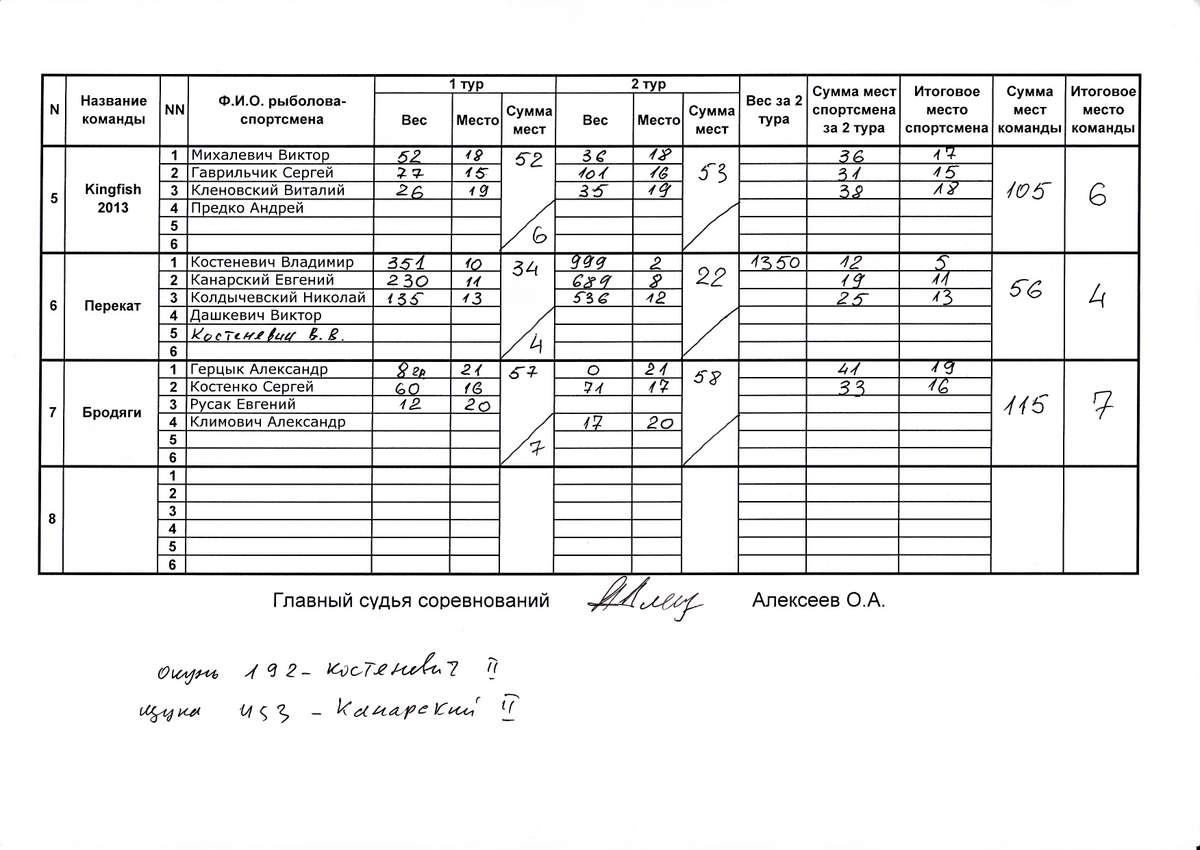 N Название команды NN Ф.И.О. рыболова-спортсмена 1 тур 2 тур Вес за 2 тура Сумма мест спортсмена за 2 тура Итоговое место спортсмена Сумма мест команды Итоговое место команды
Вес Место Сумма мест Вес Место Сумма мест
5 Kingfish 2013 1 Михалевич Виктор 52 18 52 36 18 53 36 17 105 6
2 Гаврильчик Сергей 77 15 101 16 31 15
3 Кленовский Виталий 26 19 35 19 38 18
4 Предко Андрей
5 6
6
6 Перекат 1 Костеневич Владимир 351 10 34 999 2 22 1350 12 5 56 4
2 Канарский Евгений 230 11 689 8 19 11
3 Колдычевский Николай 135 13 536 12 25 13
4 Дашкевич Виктор
5 Костеневич В.В. 4
6
7 Бродяги 1 Герцык Александр 8 гр 21 57 0 21 58 41 19 115 7
2 Костенко Сергей 60 16 71 17 33 16
3 Русак Евгений 12 20
4 Климович Александр 17 20
5 7
6
8 1
2
3
4
5
6
Главный судья соревнований Алексеев О.А.
окунь 192 - Костеневич II
щука 453 - Канарский II